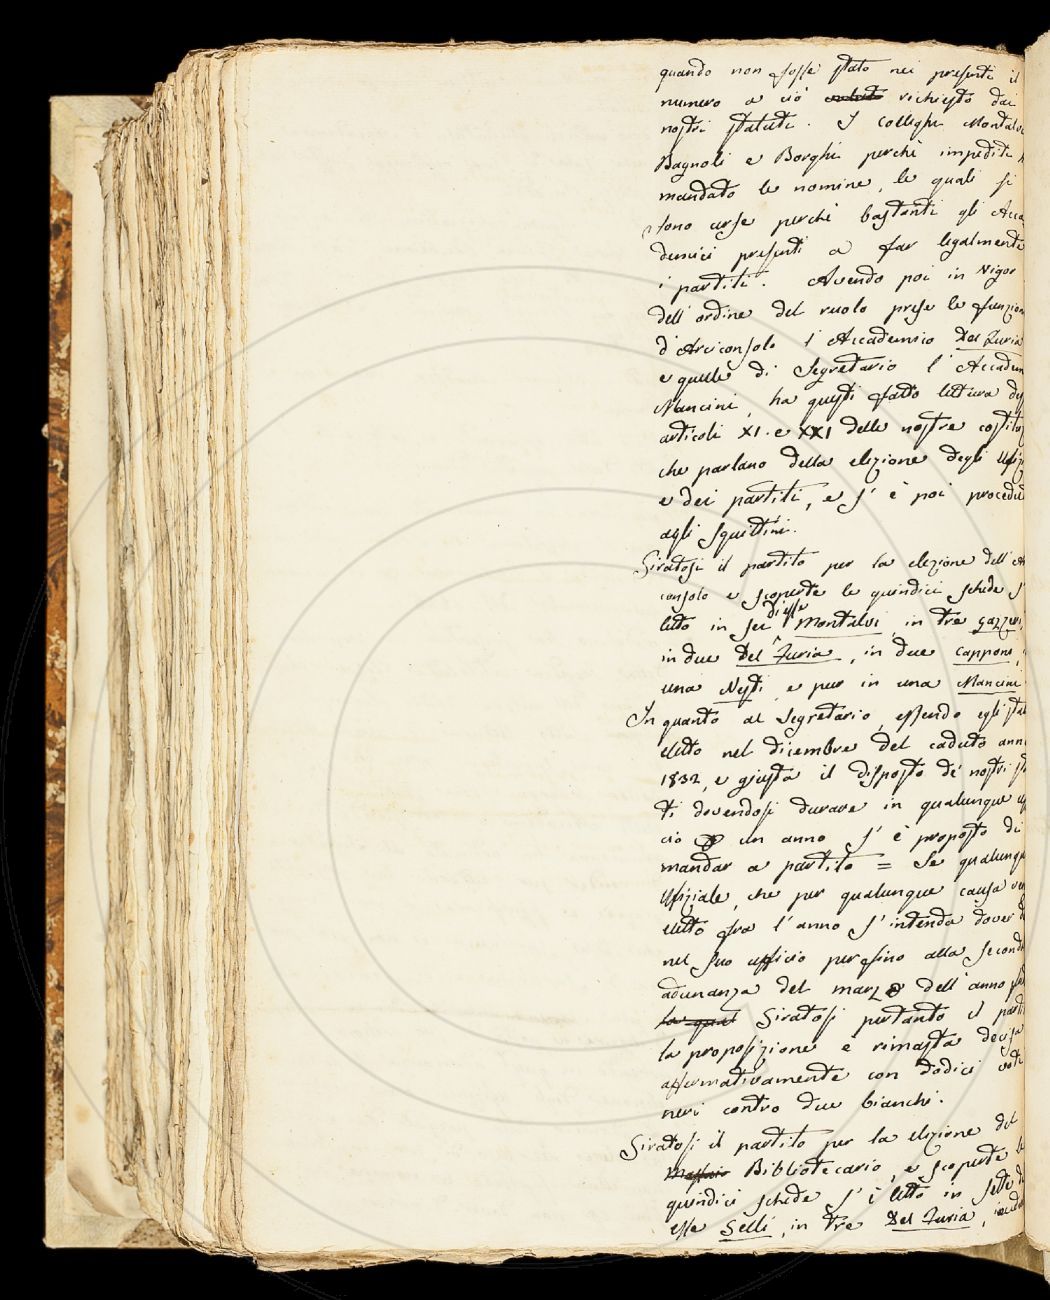 quando non fosse stato nei presenti il
numero a ciò richiesto dai
nostri statuti. I Colleghi Montalvi
Bagnoli e Borghi perchè impediti
mandato le nomine, le quali si
sono arse perchè bastanti gli Acca
demici presenti a far legalmente
i partiti. Avendo poi in vigor
dell'ordine del ruolo prese le funzion
d'Arciconsolo l'Accademico Del Furia
e quelle di Segretario l'Accadem
Mancini, ha questi fatto lettura de
articoli XI. e XXI delle nostre costituz
che parlano della elezione degli Ufiz
e dei partiti, e s'è poi procedu
agli squittini.
Giratosi il partito per la elezione dell'A
consolo e scoperte le quindici schede s'
letto in sei di esse Montalvi, in tre Gazzeri
in due Del Furia, in due Capponi,
una Nesti e pur in una Mancini
In quanto al Segretario, essendo egli sta
eletto nel dicembre del caduto ann
1832, e giusta il disposto de' nostri st
ti dovendosi durare in qualunque
cio un anno s'è proposto di
mandar a partito = Se qualunqu
Ufiziale, che per qualunque causa ven
eletto fra l'anno s'intenda dover
nel suo ufficio perfino alla second
adunanza del marzo dell'anno
la qual Giratosi pertanto il parti
la proposizione è rimasta decisa
affermativamente con dodici voti
neri contro due bianchi.
Giratosi il partito per la elezione del
Massaio Bibliotecario, e scoperte le
quindici schede s'è letto in sette
esse Selli, in tre Del Furia,